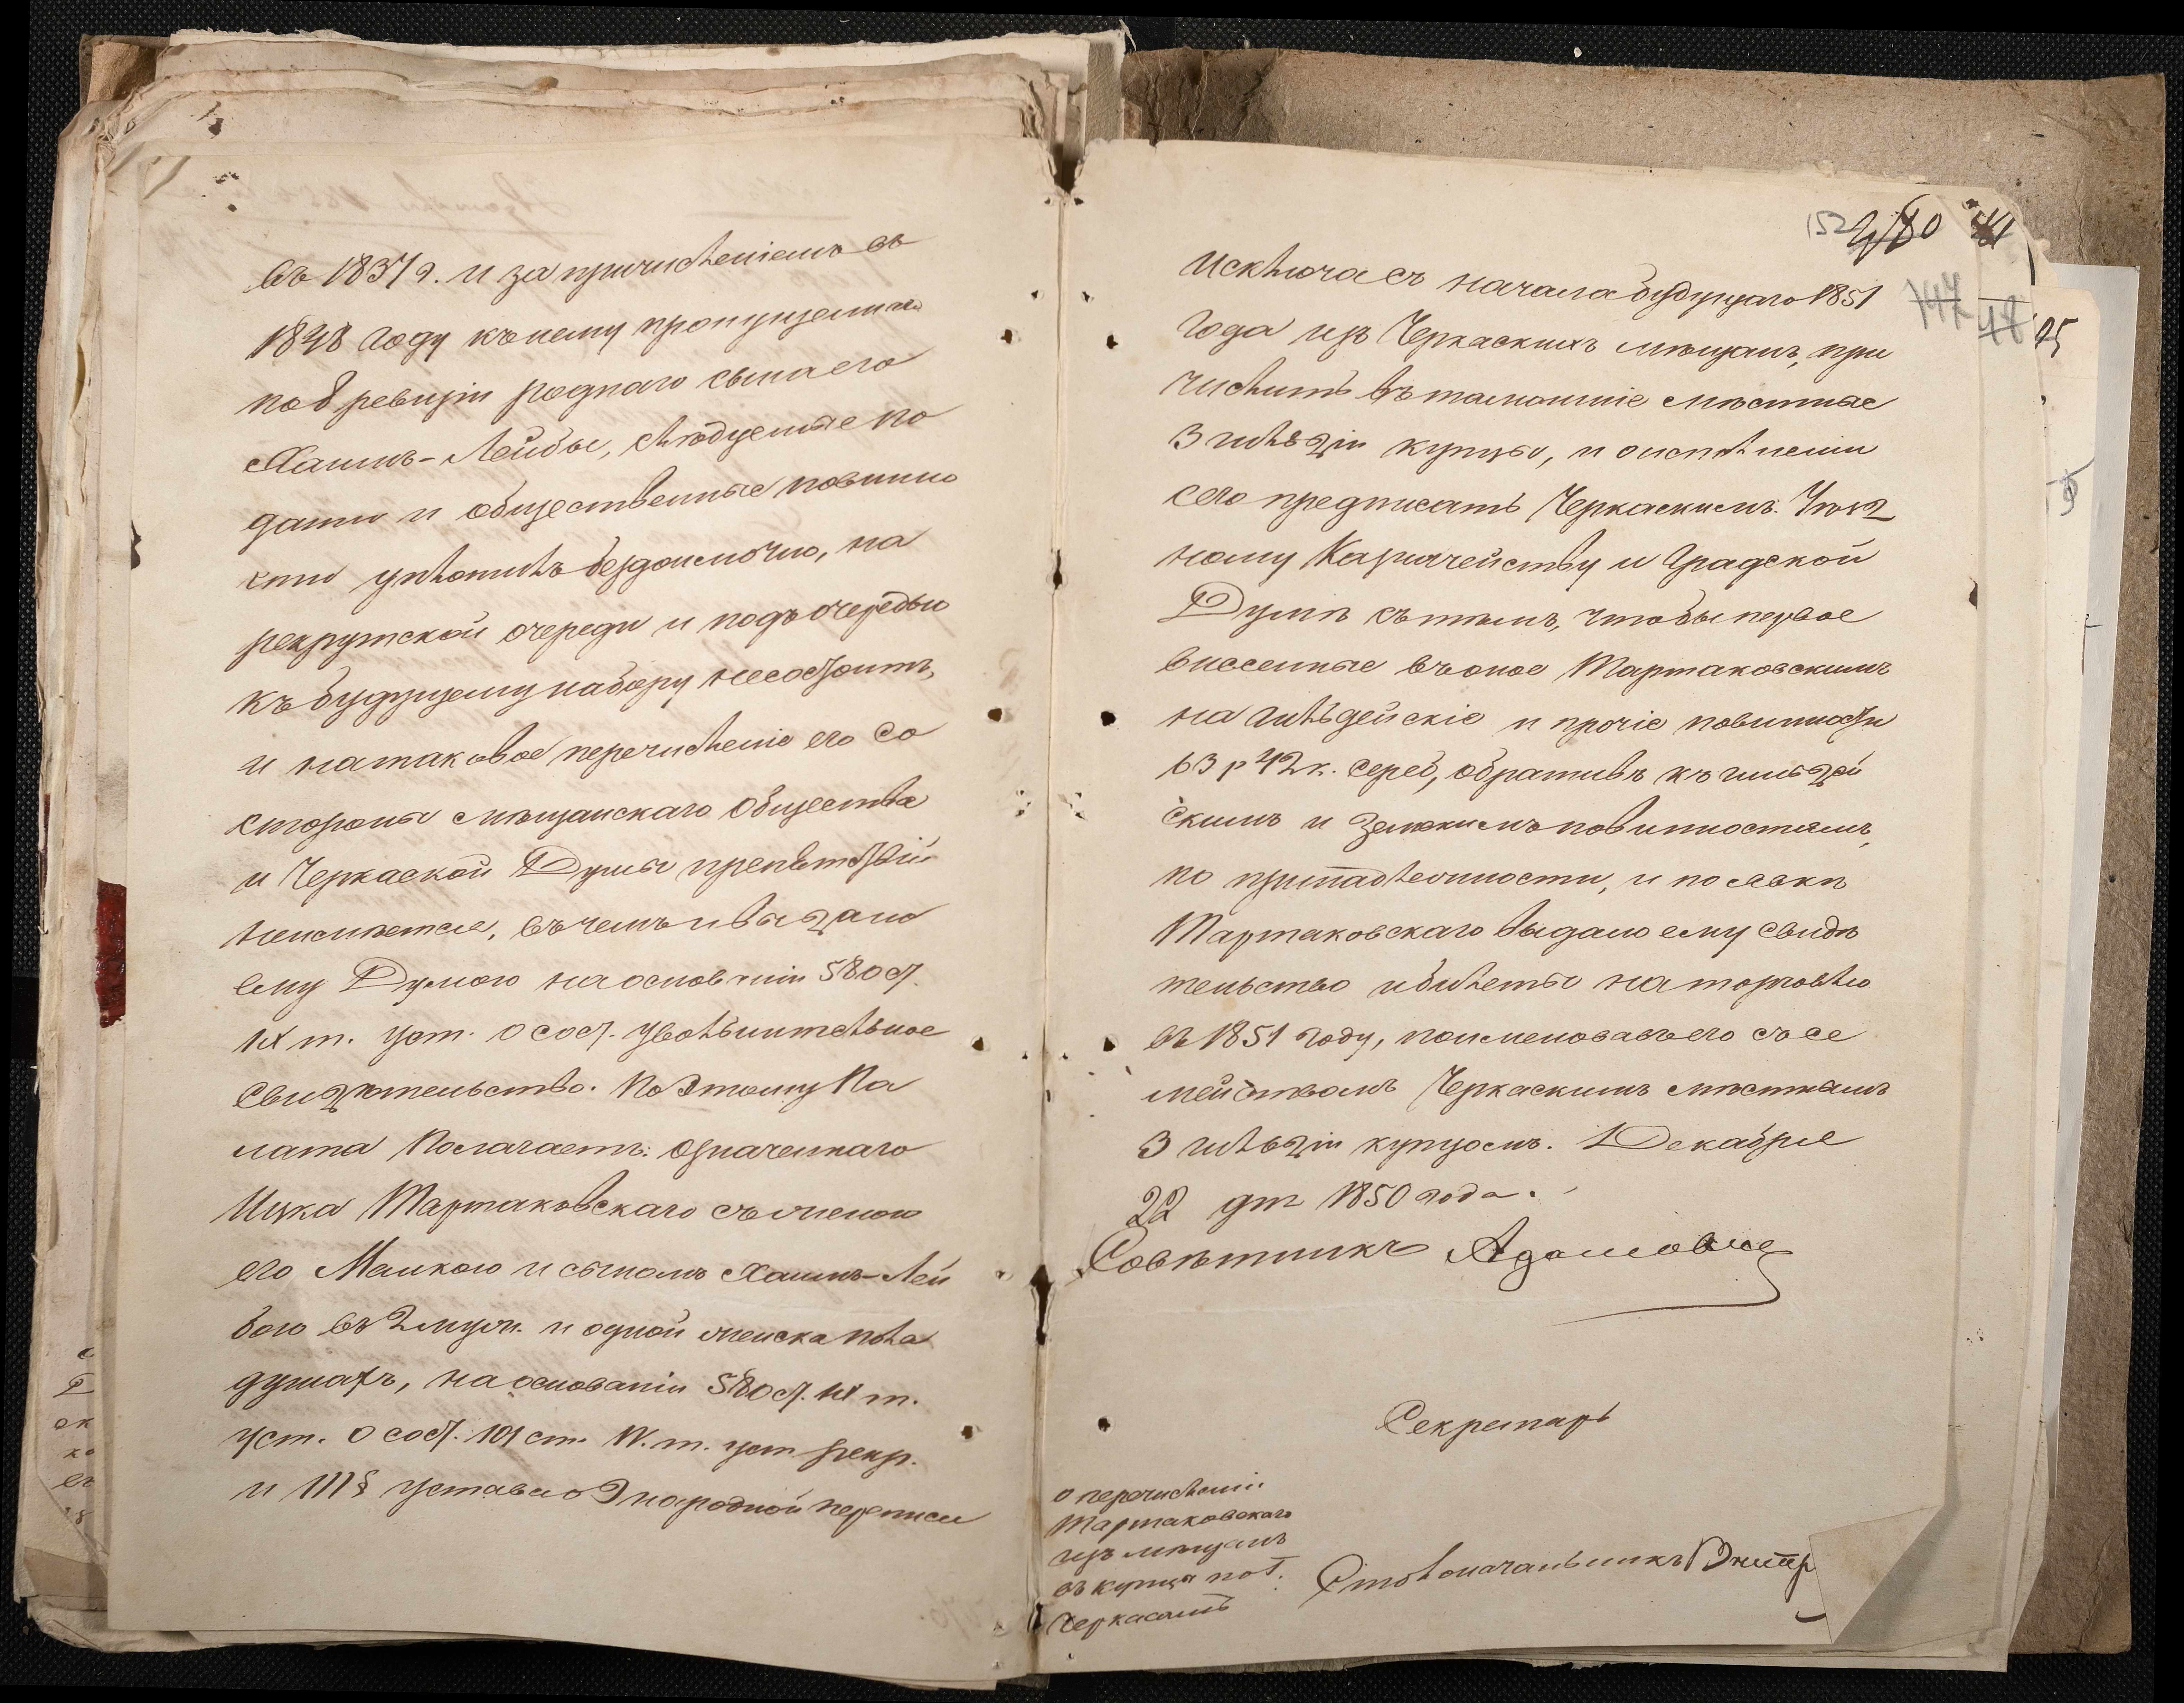 въ 1837 г. и за причисленіемъ въ
1848 году къ нему пропущеннаго
по 8 ревизіи роднаго сына его
Хаимъ-Лейбы, слѣдуемые по
дати и общественные повинно
сти уплотилъ бездоимочно, на
рекрутской очереди и подъ очередью
къ будущему набору несостоитъ,
и натаковое перечисленіе его со
стороны мѣщанскаго Общества
и Черкаской Думы препятствій
неимѣется, въ чемъ и выдано
ему Думою на основаніи 580 ст.
IX т. уст. о сост. увольнительное
свидѣтельство. По этому Па
лата Полагаетъ: означеннаго
Ицка Тартаковскаго съ женою
его Малкою и сыномъ Хаимъ-Лей
бою въ 2 муж. и одной женска пола
душахъ, на основаніи 580 ст. IX т.
уст. о сост. 101 ст. IV. т. уст. рекр.
и 111 § устава о 9 народной переписи
152 180
147 48 95
исключа съ начала будущаго 1851
года изъ Черкаскихъ мѣщанъ, при
числить въ тамошніе мѣстные
3 гильдіи купцы, и о исполненіи
сего предписать Черкаскимъ: Уѣзд
ному Казначейству и Градской
Думѣ съ тѣмъ, чтобы первое
внесенные въ оное Тартаковскимъ
на гильдейскіе и прочіе повинности
63 р 42 к. сереб, обративъ къ гильдей
скимъ и земскимъ повинностямъ,
по принадлежности, и по явкѣ
Тартаковскаго выдало ему свидѣ
тельство и билеты на торговлю
въ 1851 году, поименовавъ его съ се
мействомъ Черкаскимъ мѣстнымъ
3 гильдіи купцомъ. Декабря
22 дня 1850 года.
Совѣтникъ Адамовичъ
Секретарь
о перечисленіи
Тартаковскаго
изъ мѣщанъ
въ купцы по г.
Черкасамъ
Столоначальникъ